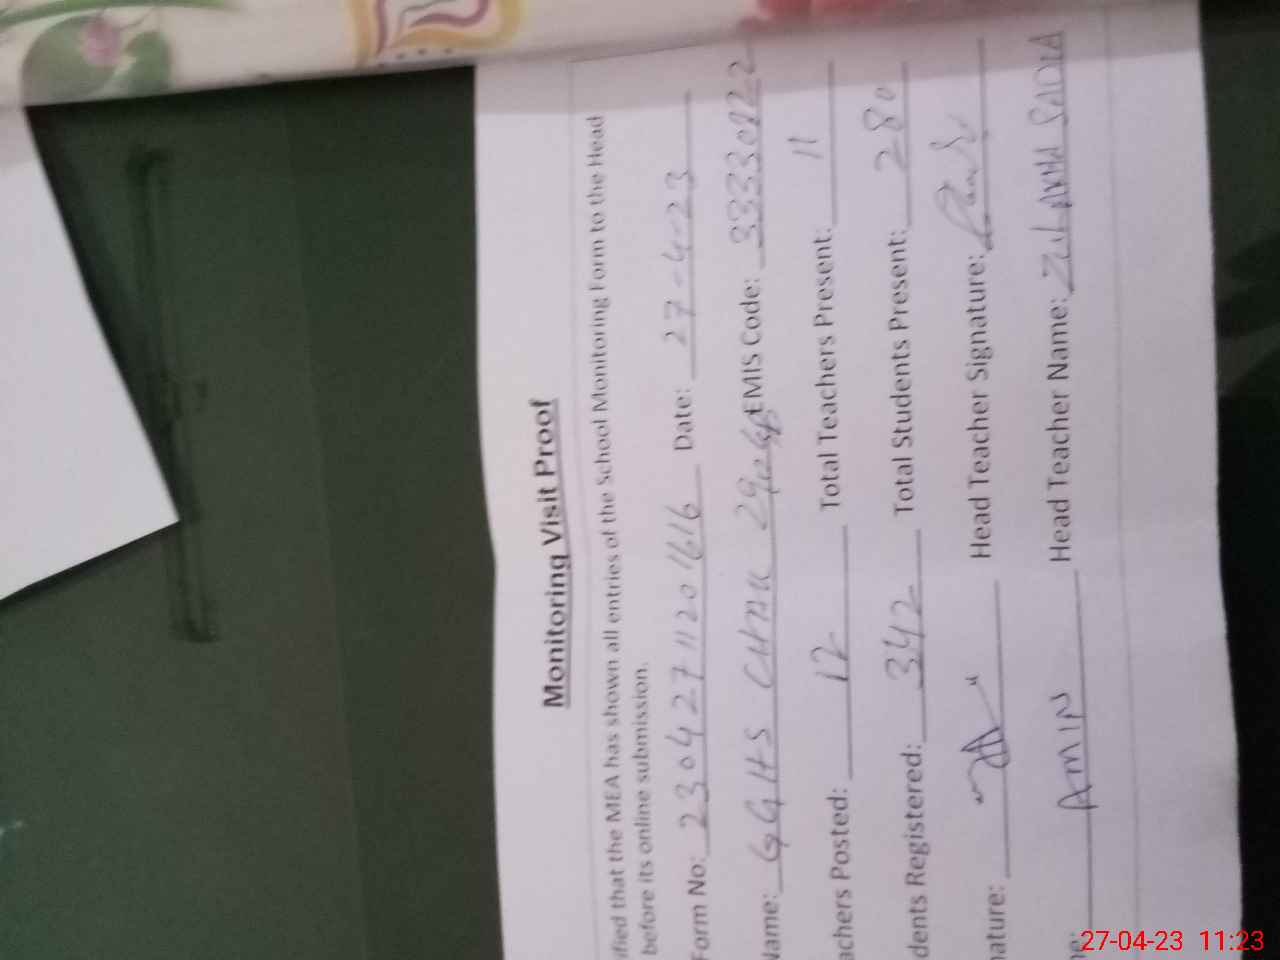 Monitoring Visit Proof
ified that the MEA has shown all entries of the School Monitoring Form to the Head
before its online submission.
Form No: 2304271120 1616 Date: 27-4-23
Name: GGHS CHAK EMIS Code:
achers Posted: 12 Total Teachers Present: 11
dents Registered: 342 Total Students Present: 280
nature: Head Teacher Signature:
me: AMIN Head Teacher Name:
27-04-23 11:23